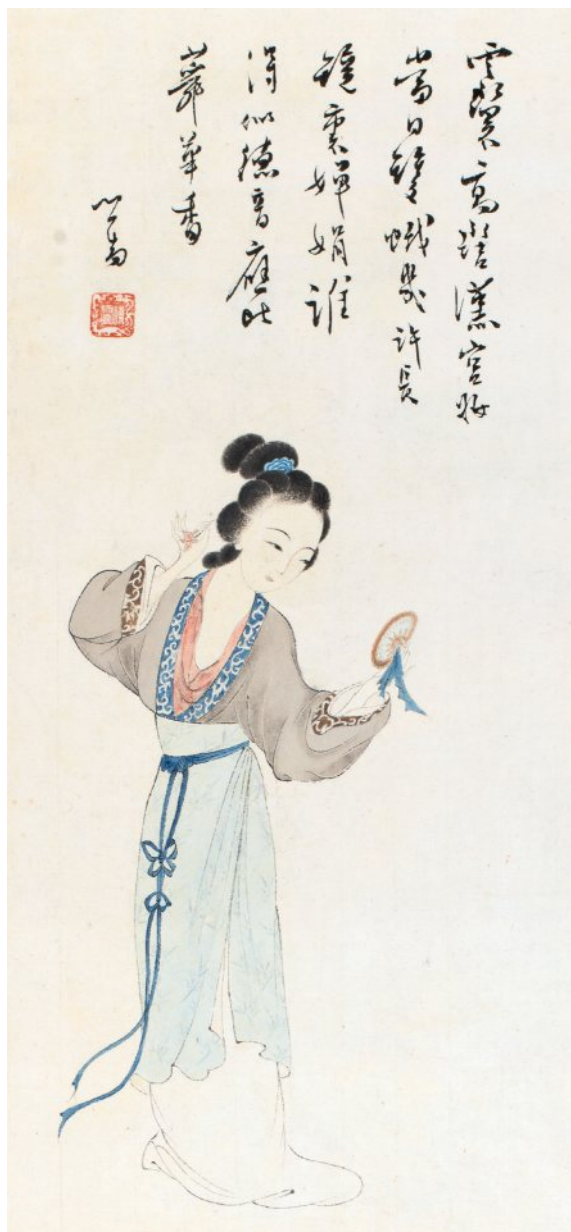 雲鬟高髻漢宮妝
當日雙蛾幾許長
鏡裏嬋娟誰
得似德音應比
蕣華香
心畬